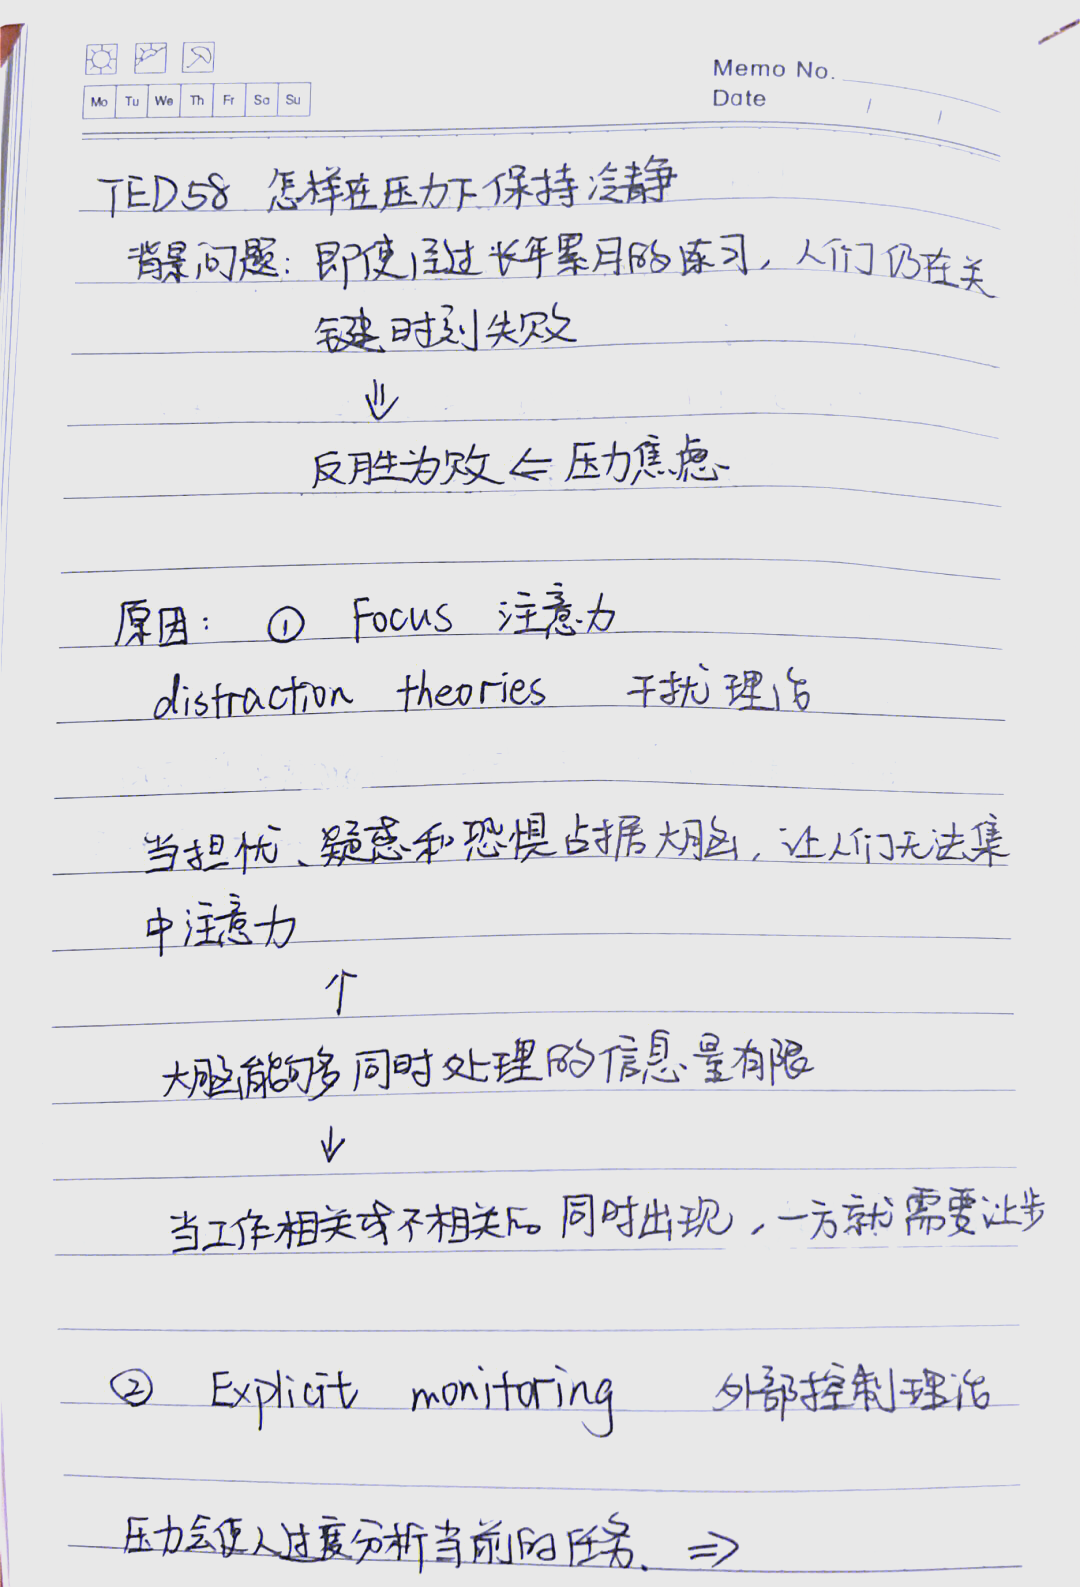 Memo No.
Mo Tu We Th Fr Sa Su
Date / /
TED58 怎样在压力下保持冷静
背景问题：即使经过长年累月的练习，人们仍在关
键时刻失败
⇓
反胜为败 ⇐ 压力焦虑
原因： ① Focus 注意力
distraction theories 干扰理论
当担忧、疑惑和恐惧占据大脑，让人们无法集
中注意力
↑
大脑能够多同时处理的信息量有限
↓
当工作相关或不相关后同时出现，一方就需要让步
② Explicit monitoring 外部控制理论
压力会使人过度分析当前的任务. ⇒